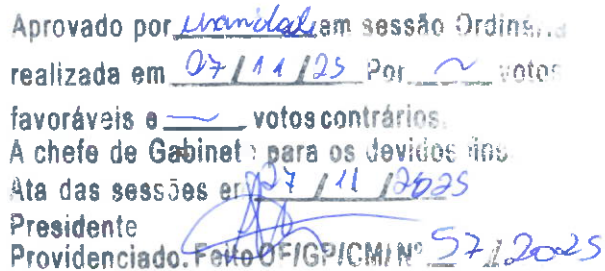 Aprovado por unanidade em sessão Ordinária
realizada em 07/11/25 Por ~ votos
favoráveis e — votos contrários.
A chefe de Gabinete para os devidos fins
Ata das sessões em 27/11/2025
Presidente
Providenciado. Feito OF/GP/CM/Nº 57/2025